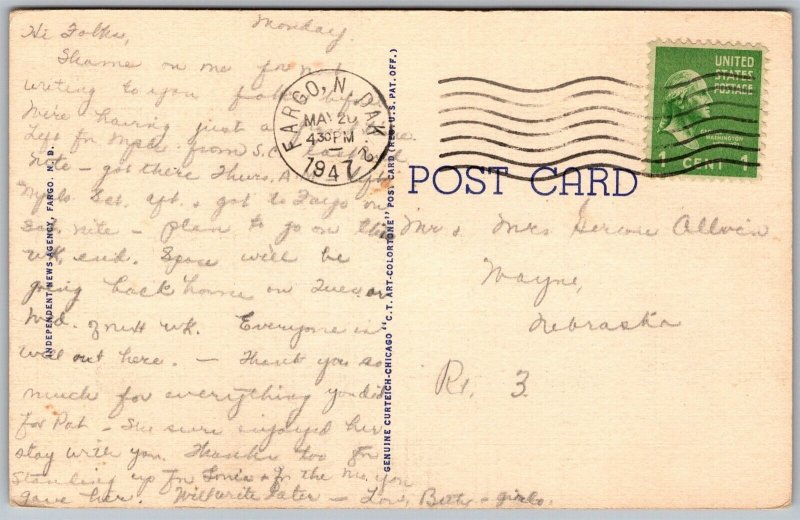 Monday
Hi Folks,
Shame on me for not
writing to you folks before.
We're having just a
Left for Mpls. from S.C.
nite - got there Thurs. A.M. left
Mpls Sat. aft. & got to Fargo on
Sat. nite - plan to go on this
wk. end. will be
going back home on Tues. or
Wed. of next wk. Everyone is
well out here. - Thank you so
much for everything you did
for Pat - She sure enjoyed her
stay with you. Thanks too for
standing up for & for the you
gave her. Will write later - Love, Betty & girls.
INDEPENDENT NEWS AGENCY, FARGO, N. D.
GENUINE CURTEICH-CHICAGO "C.T. ART-COLORTONE" POST CARD (REG. U.S. PAT. OFF.)
FARGO, N. DAK.
MAY 20
430 PM
1947
2
UNITED
STATES
POSTAGE
WASHINGTON
1 CENT 1
POST CARD
Mr & Mrs Allvin
Wayne,
Nebraska
Rt. 3